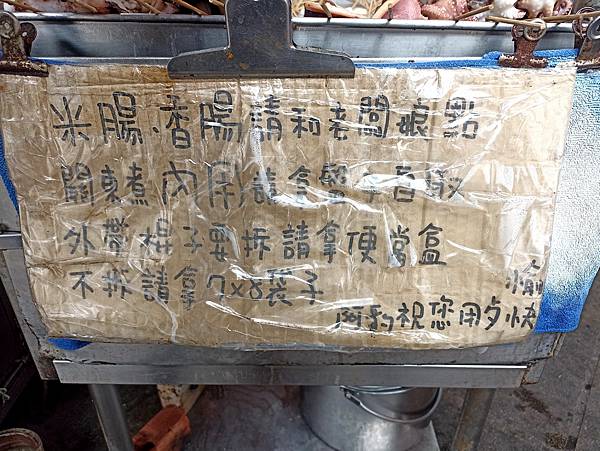 米腸.香腸請和老闆娘點
關東煮內用請拿
外帶棍子要拆請拿便當盒
不拆請拿7x8袋子
阿豹祝您用歺愉快